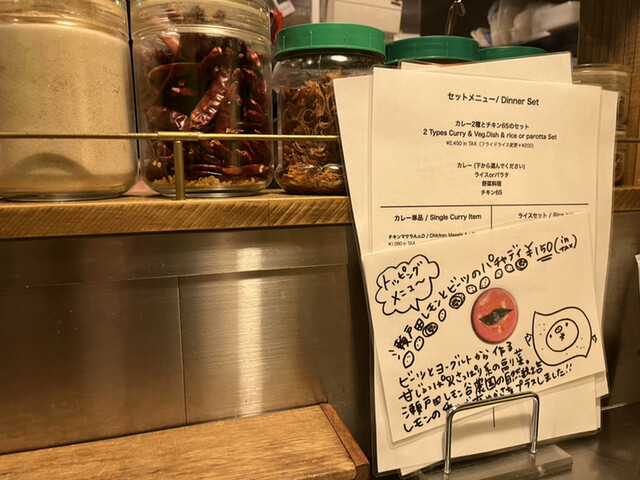 セットメニュー/ Dinner Set
カレー2種とチキン65のセット
2 Types Curry & Veg.Dish & rice or parotta Set
¥2,450 in TAX (フライドライス変更+¥200)
カレー(下から選んでください)
ライスorパラタ
野菜料理
チキン65
カレー単品 / Single Curry Item
ライスセット /
チキンマサラA.o.D / Chicken Masala
¥1,080 in TAX
トッピング
メニュー
瀬戸田レモンとビーツのパチャディ ¥150 (in TAX)
ビーツとヨーグルトから作る
甘じょっぱ さっぱり系の副菜。
瀬戸田レモン谷農園の自然栽培
レモンの プラスしました!!